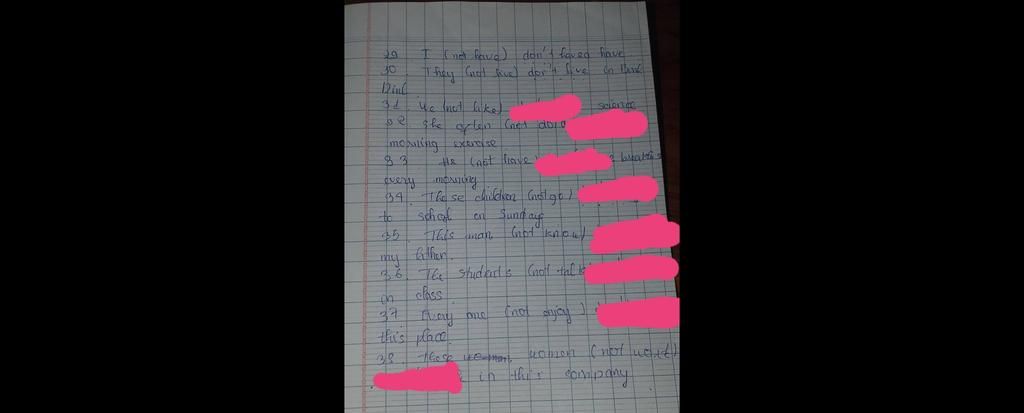 29 I (not have) don't haved have
30. They (not live) don't live in
31. He (not like) science
32 She often (not do)
morning exercise
33 He (not have
every morning
34. These children (not go)
to school on Sunday
35. This man (not know)
my father.
36. The students (not talk
in class.
37 Every one (not enjoy)
this place.
38. These women (not work)
in this company